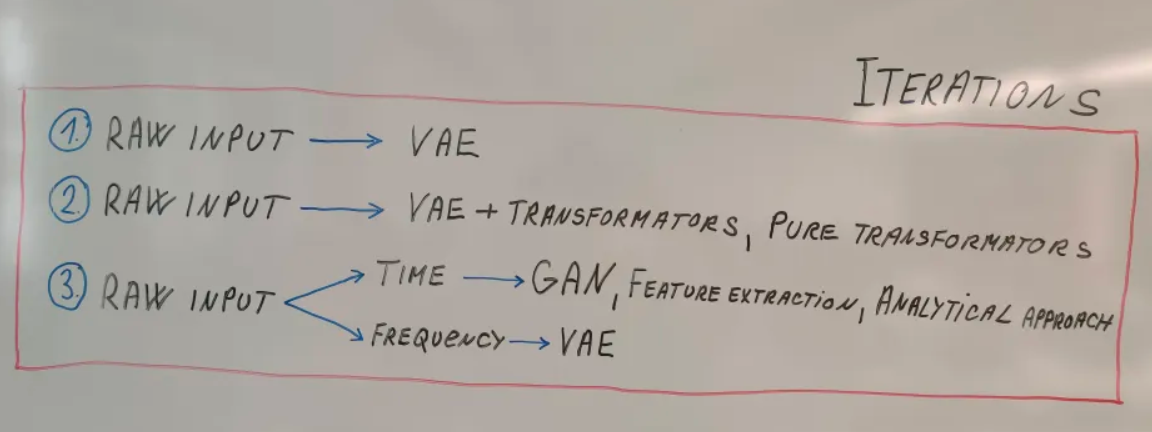 ITERATIONS
1. RAW INPUT → VAE
2. RAW INPUT → VAE + TRANSFORMATORS, PURE TRANSFORMATORS
3. RAW INPUT
TIME → GAN, FEATURE EXTRACTION, ANALYTICAL APPROACH
FREQUENCY → VAE